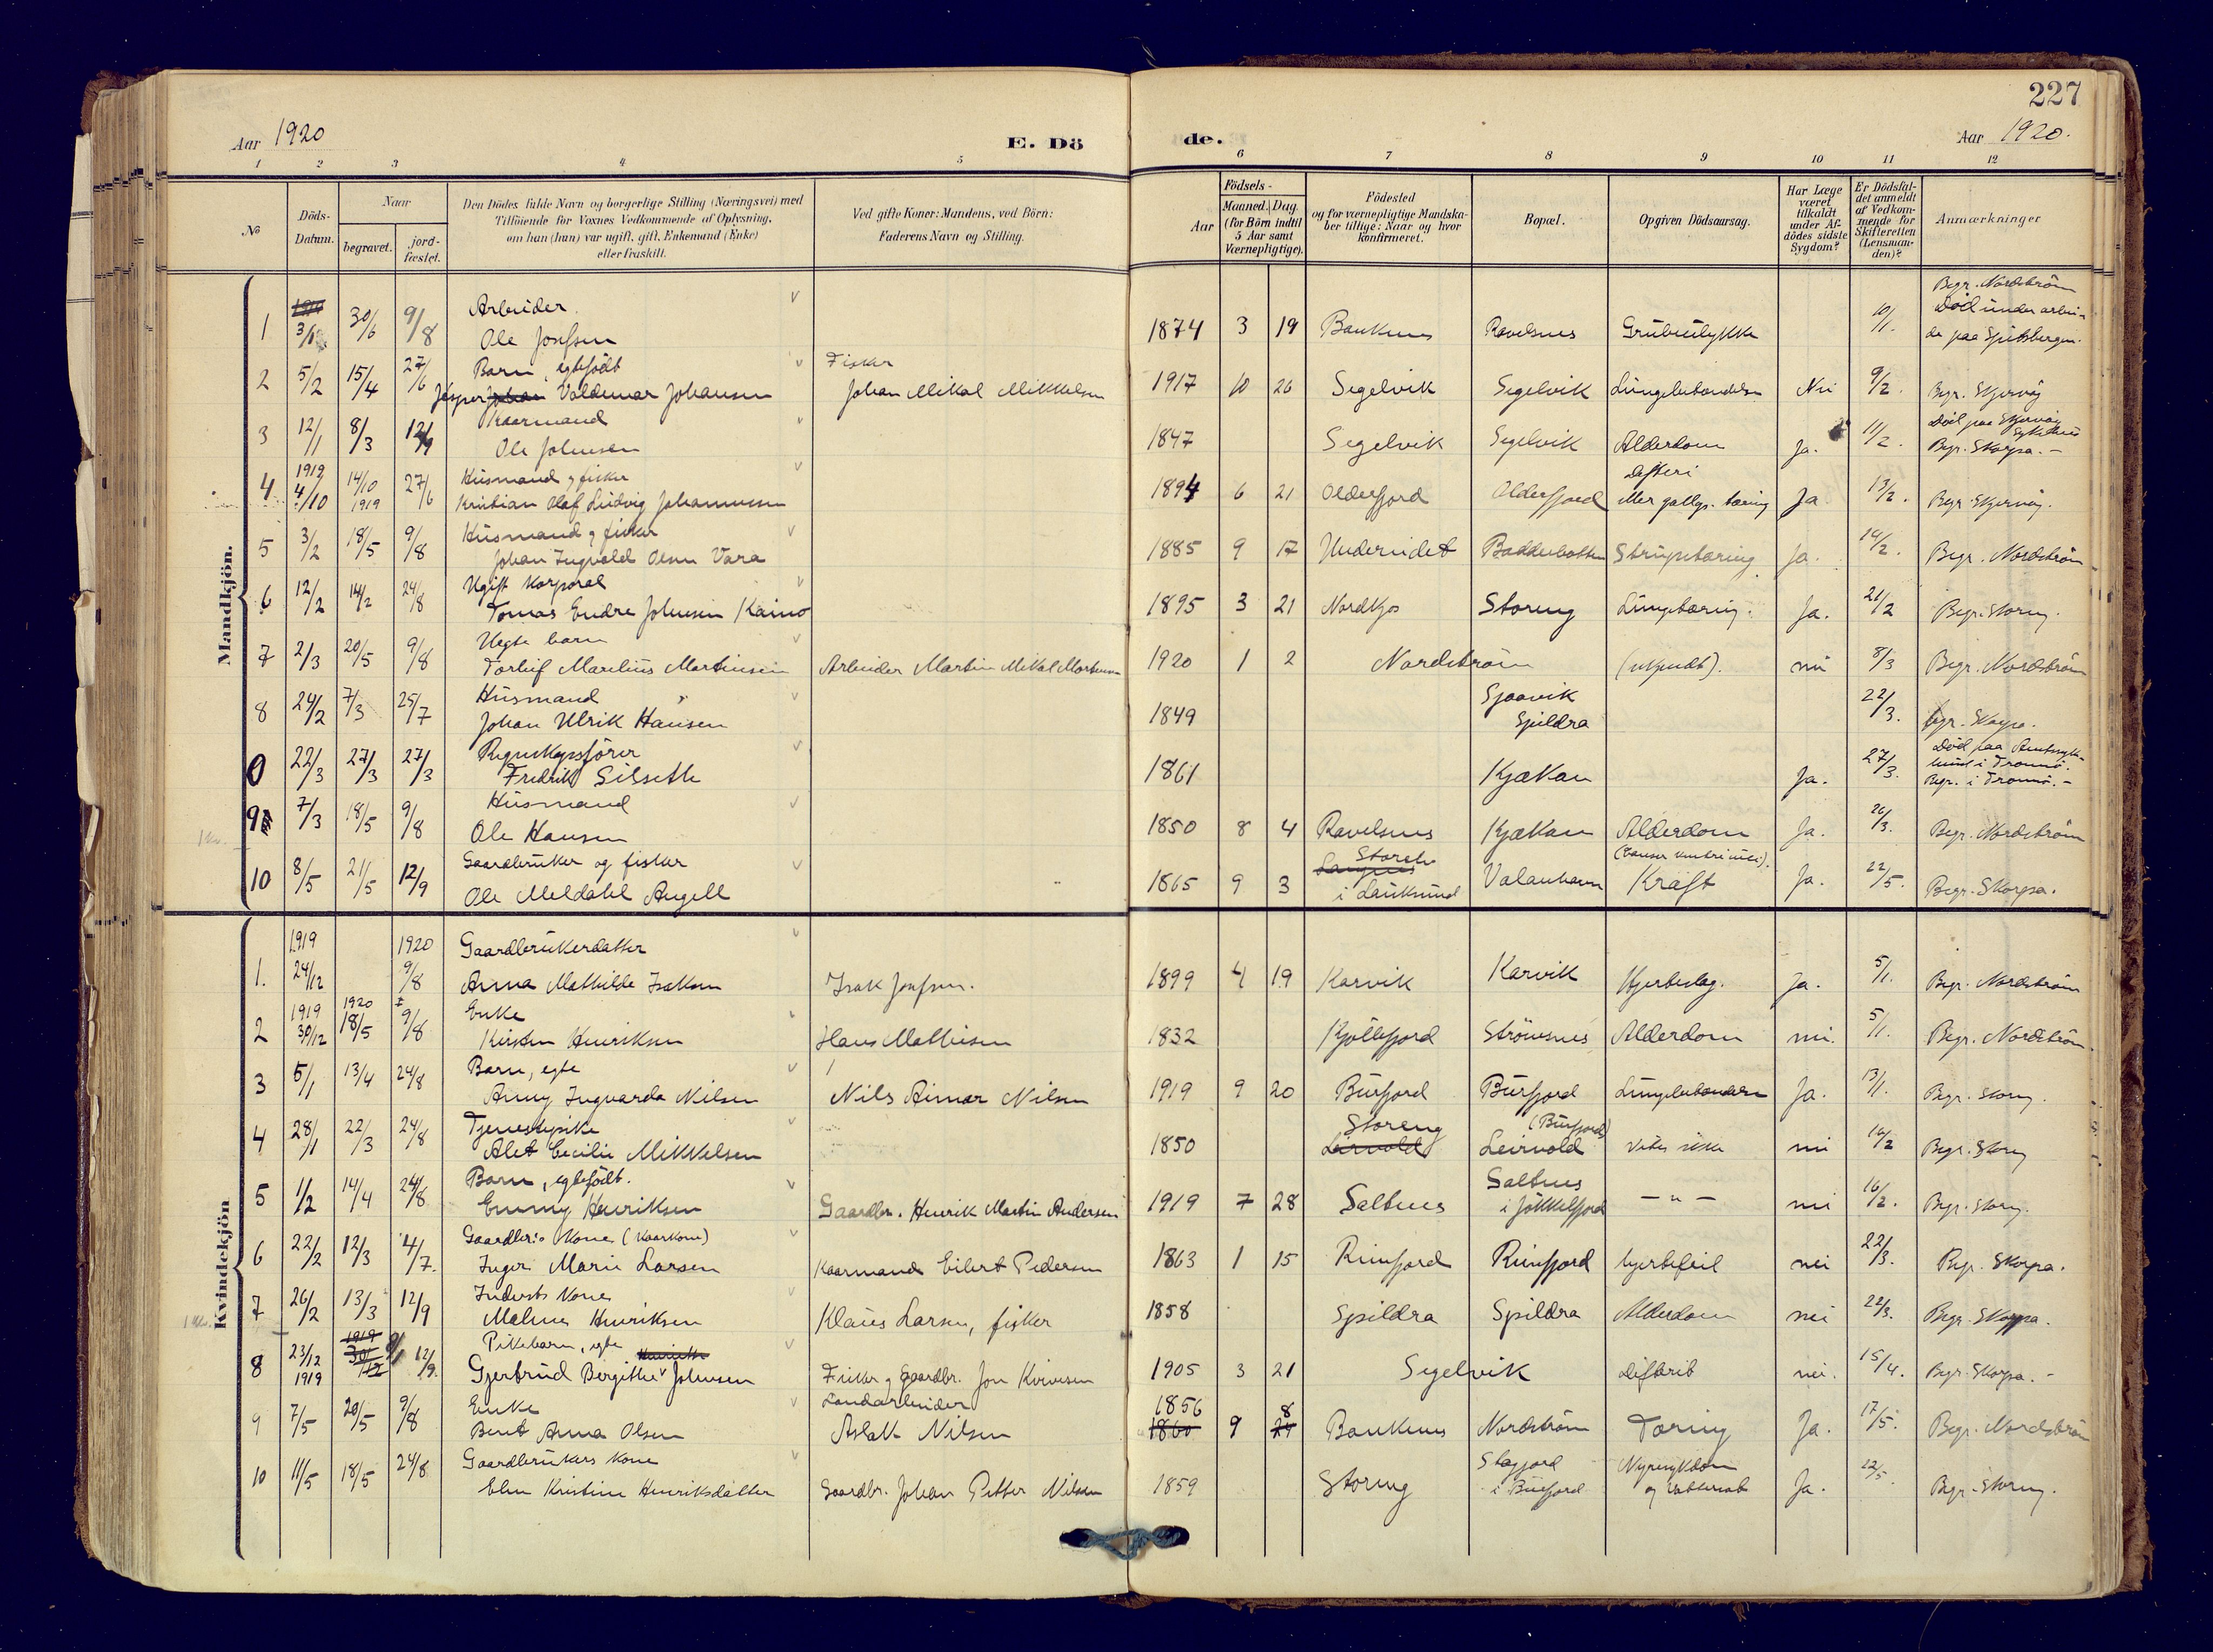 227
Aar 1920
E. Dö
de.
Aar 1920.
1 2 3 4 5 6 7 8 9 10 11 12
No
Döds-Datum.
Naar
begravet.
jord-fæstet.
Den Dödes fulde Navn og borgerlige Stilling (Næringsvei) med
Tilföiende for Voxnes Vedkommende af Oplysning,
om han (hun) var ugift, gift, Enkemand (Enke)
eller fraskilt.
Ved gifte Koner: Mandens, ved Börn:
Faderens Navn og Stilling.
Aar
Födsels-
Maaned. Dag.
(for Börn indtil
5 Aar samt
Værnepligtige).
Födested
og for værnepligtige Mandska-
ber tillige: Naar og hvor
konfirmeret.
Bopæl.
Opgiven Dödsaarsag.
Har Læge
været
tilkaldt
under Af-
dödes sidste
Sygdom?
Er Dödsfal-
det anmeldt
af Vedkom-
mende for
Skifteretten
(Lensman-
den)?
Anmærkninger
Mandkjön.
Arbeider. Begr. Nordström
1 30/6 9/8 Ole Josefsen 1874 3 19 Baukenes Ravelsnes Grubeulykke 10/1. Död under arbei-
de paa Spitsbergen.
Barn, egtefödt Fisker
2 5/2 15/4 27/6 Jesper Valdemar Johansen Johan Mikal Mikkelsen 1917 10 26 Segelvik Segelvik Lungebetændelse Nei 9/2. Begr. Skjervöy
Kaarmand Död paa Skjervöy Sykehus
3 12/1 8/3 12/9 Ole Johnsen 1847 Segelvik Segelvik Alderdom Ja. 11/2. Begr. Skorpa.-
1919 Husmand og fisker Difteri
4 4/10 14/10 1919 27/6 Kristian Olaf Ludvig Johannessen 1894 6 21 Olderfjord Olderfjord eller gallop. tæring Ja 13/2. Begr. Skjervöy.
Husmand og fisker
5 3/2 18/5 9/8 Johan Ingvald Olsen Vara 1885 9 17 Undereidet Badderbotten Strupetæring Ja. 14/2. Begr. Nordström
Ugift Korporal
6 12/2 14/2 24/8 Tomas Endre Johnsen Kaino 1895 3 21 Storeng Lungetæring. Ja. 21/2 Begr. Storeng.
Uegte barn
7 2/3 20/5 9/8 Torleif Marelius Martinsen Arbeider Martin Mikal Mortensen 1920 1 2 Nordström (ukjendt). nei 8/3 Begr. Nordström
Husmand Sjaavik
8 24/2 7/3 25/7 Johan Ulrik Hansen 1849 Spildra 22/3. Begr. Skorpa.
Regnskapsförer Död paa Amtssyke-
0 22/3 27/3 27/3 Fredrik Silseth 1861 Kjækan Ja. 27/3. huset i Tromsö.
Begr. i Tromsö.-
Husmand
9 7/3 18/5 9/8 Ole Hansen 1850 8 4 Ravelsnes Kjækan Alderdom Ja. 26/3. Begr. Nordström
Gaardbruker og fisker
10 8/5 21/5 12/9 Ole Meldahl Angell 1865 9 3 i Lauksund Valanhavn Kræft Ja. 22/5. Begr. Skorpa.
Kvindekjön
1919 1920 Gaardbrukerdatter
1. 24/12 9/8 Anna Mathilde Isaksen Isak Josefsen. 1899 4 19 Karvik Karvik Hjerteslag. Ja. 5/1. Begr. Nordström
1919 1920 Enke
2 30/12 18/5 9/8 Kirsten Henriksen Hans Mathisen 1832 Kjöllefjord Strömsnes Alderdom nei. 5/1. Begr. Nordström.
Barn, egte
3 5/1 13/4 24/8 Anny Ingvarda Nilsen Nils Aimar Nilsen 1919 9 20 Burfjord Burfjord Lungebetændelse Ja. 13/1. Begr. Storeng.
Tjenestepike Storeng (Burfjord)
4 28/1 22/3 24/8 Alet Cecilie Mikkelsen 1850 Leirvold Leirvold vites ikke nei 16/2 Begr. Storeng
Barn, egtefödt. Saltnes
5 1/2 14/4 24/8 Emmy Henriksen Gaardbr. Henrik Martin Andersen 1919 7 28 Saltnes i Jökkelfjord - " - nei 16/2. Begr. Storeng.
Gaardbr:s Kone (Kaarkone)
6 22/2 12/3 4/7. Inger Marie Larsen Kaarmand Eilert Pedersen 1863 1 15 Reinfjord Reinfjord hjertefeil nei 22/3. Begr. Skorpa.
Inderst Kone
7 26/2 13/3 12/9 Malene Henriksen Klaus Larsen, fisker 1858 Spildra Spildra Alderdom nei 22/3. Begr. Skorpa.
Pikebarn, egte Henriette
8 23/12 1919 12/9. Gjertrud Bergitte Johnsen Fisker og Gaardbr. Jon Kvivesen 1905 3 21 Segelvik Difterit nei. 15/4. Begr. Skorpa.-
Enke Landarbeider 1856 8
9 7/5 20/5 9/8 Berit Anna Olsen Aslak Nilsen 1860 9 24 Baukenes Nordström Tæring Ja. 17/5. Begr. Nordström
Gaardbrukers Kone Nyresykdom
10 11/5 18/5 24/8 Elen Kristine Henriksdatter Gaardbr. Johan Petter Nilsen 1859 Storeng i Burfjord og vattersot Ja. 22/5 Begr. Storeng.